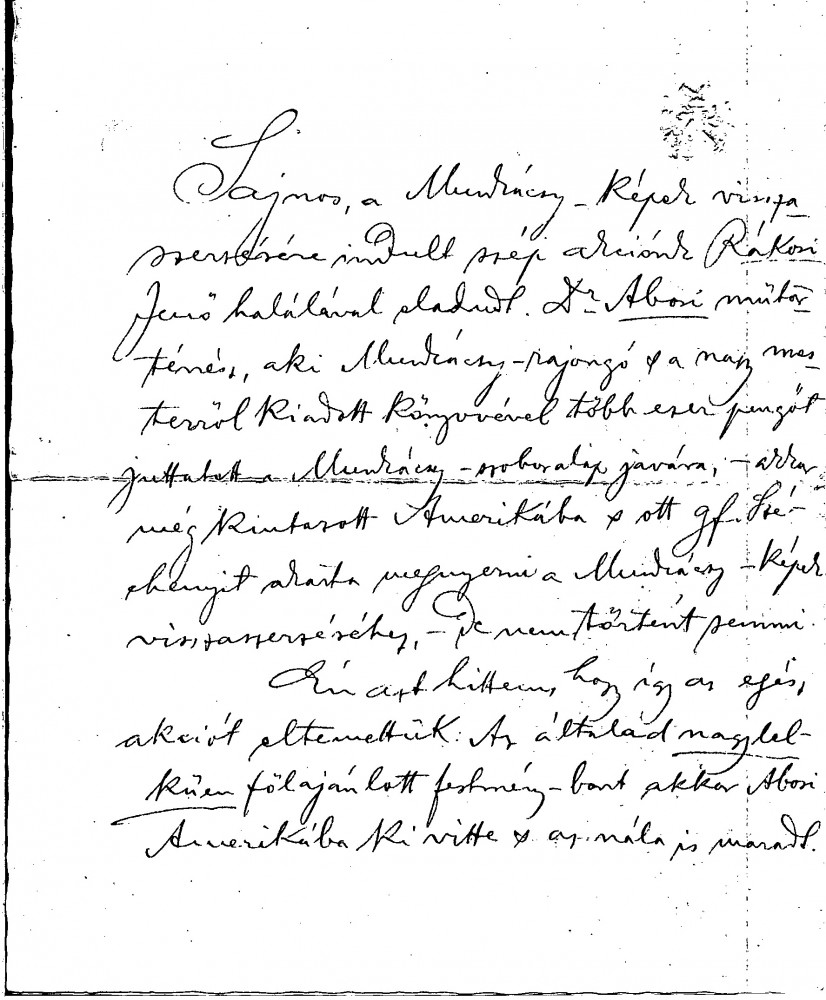 Sajnos, a Munkácsy-képek vissza-
szerzésére indult szép akciónk Rákosi
Jenő halálával elakadt. Dr Abosi műtör-
ténész, aki Munkácsy-rajongó & a nagy mes-
terről kiadott könyvével több ezer pengőt
juttatott a Munkácsy-szoboralap javára, – akkor
még kiutazott Amerikába & ott gf. Szé-
chenyit akarta megnyerni a Munkácsy-képek
visszaszerzéséhez, – de nem történt semmi.
Én azt hittem, hogy így az egész
akciót eltemettük. Az általad nagylel-
kűen fölajánlott festmény-bont akkor Abosi
Amerikába ki vitte & az nála is maradt.